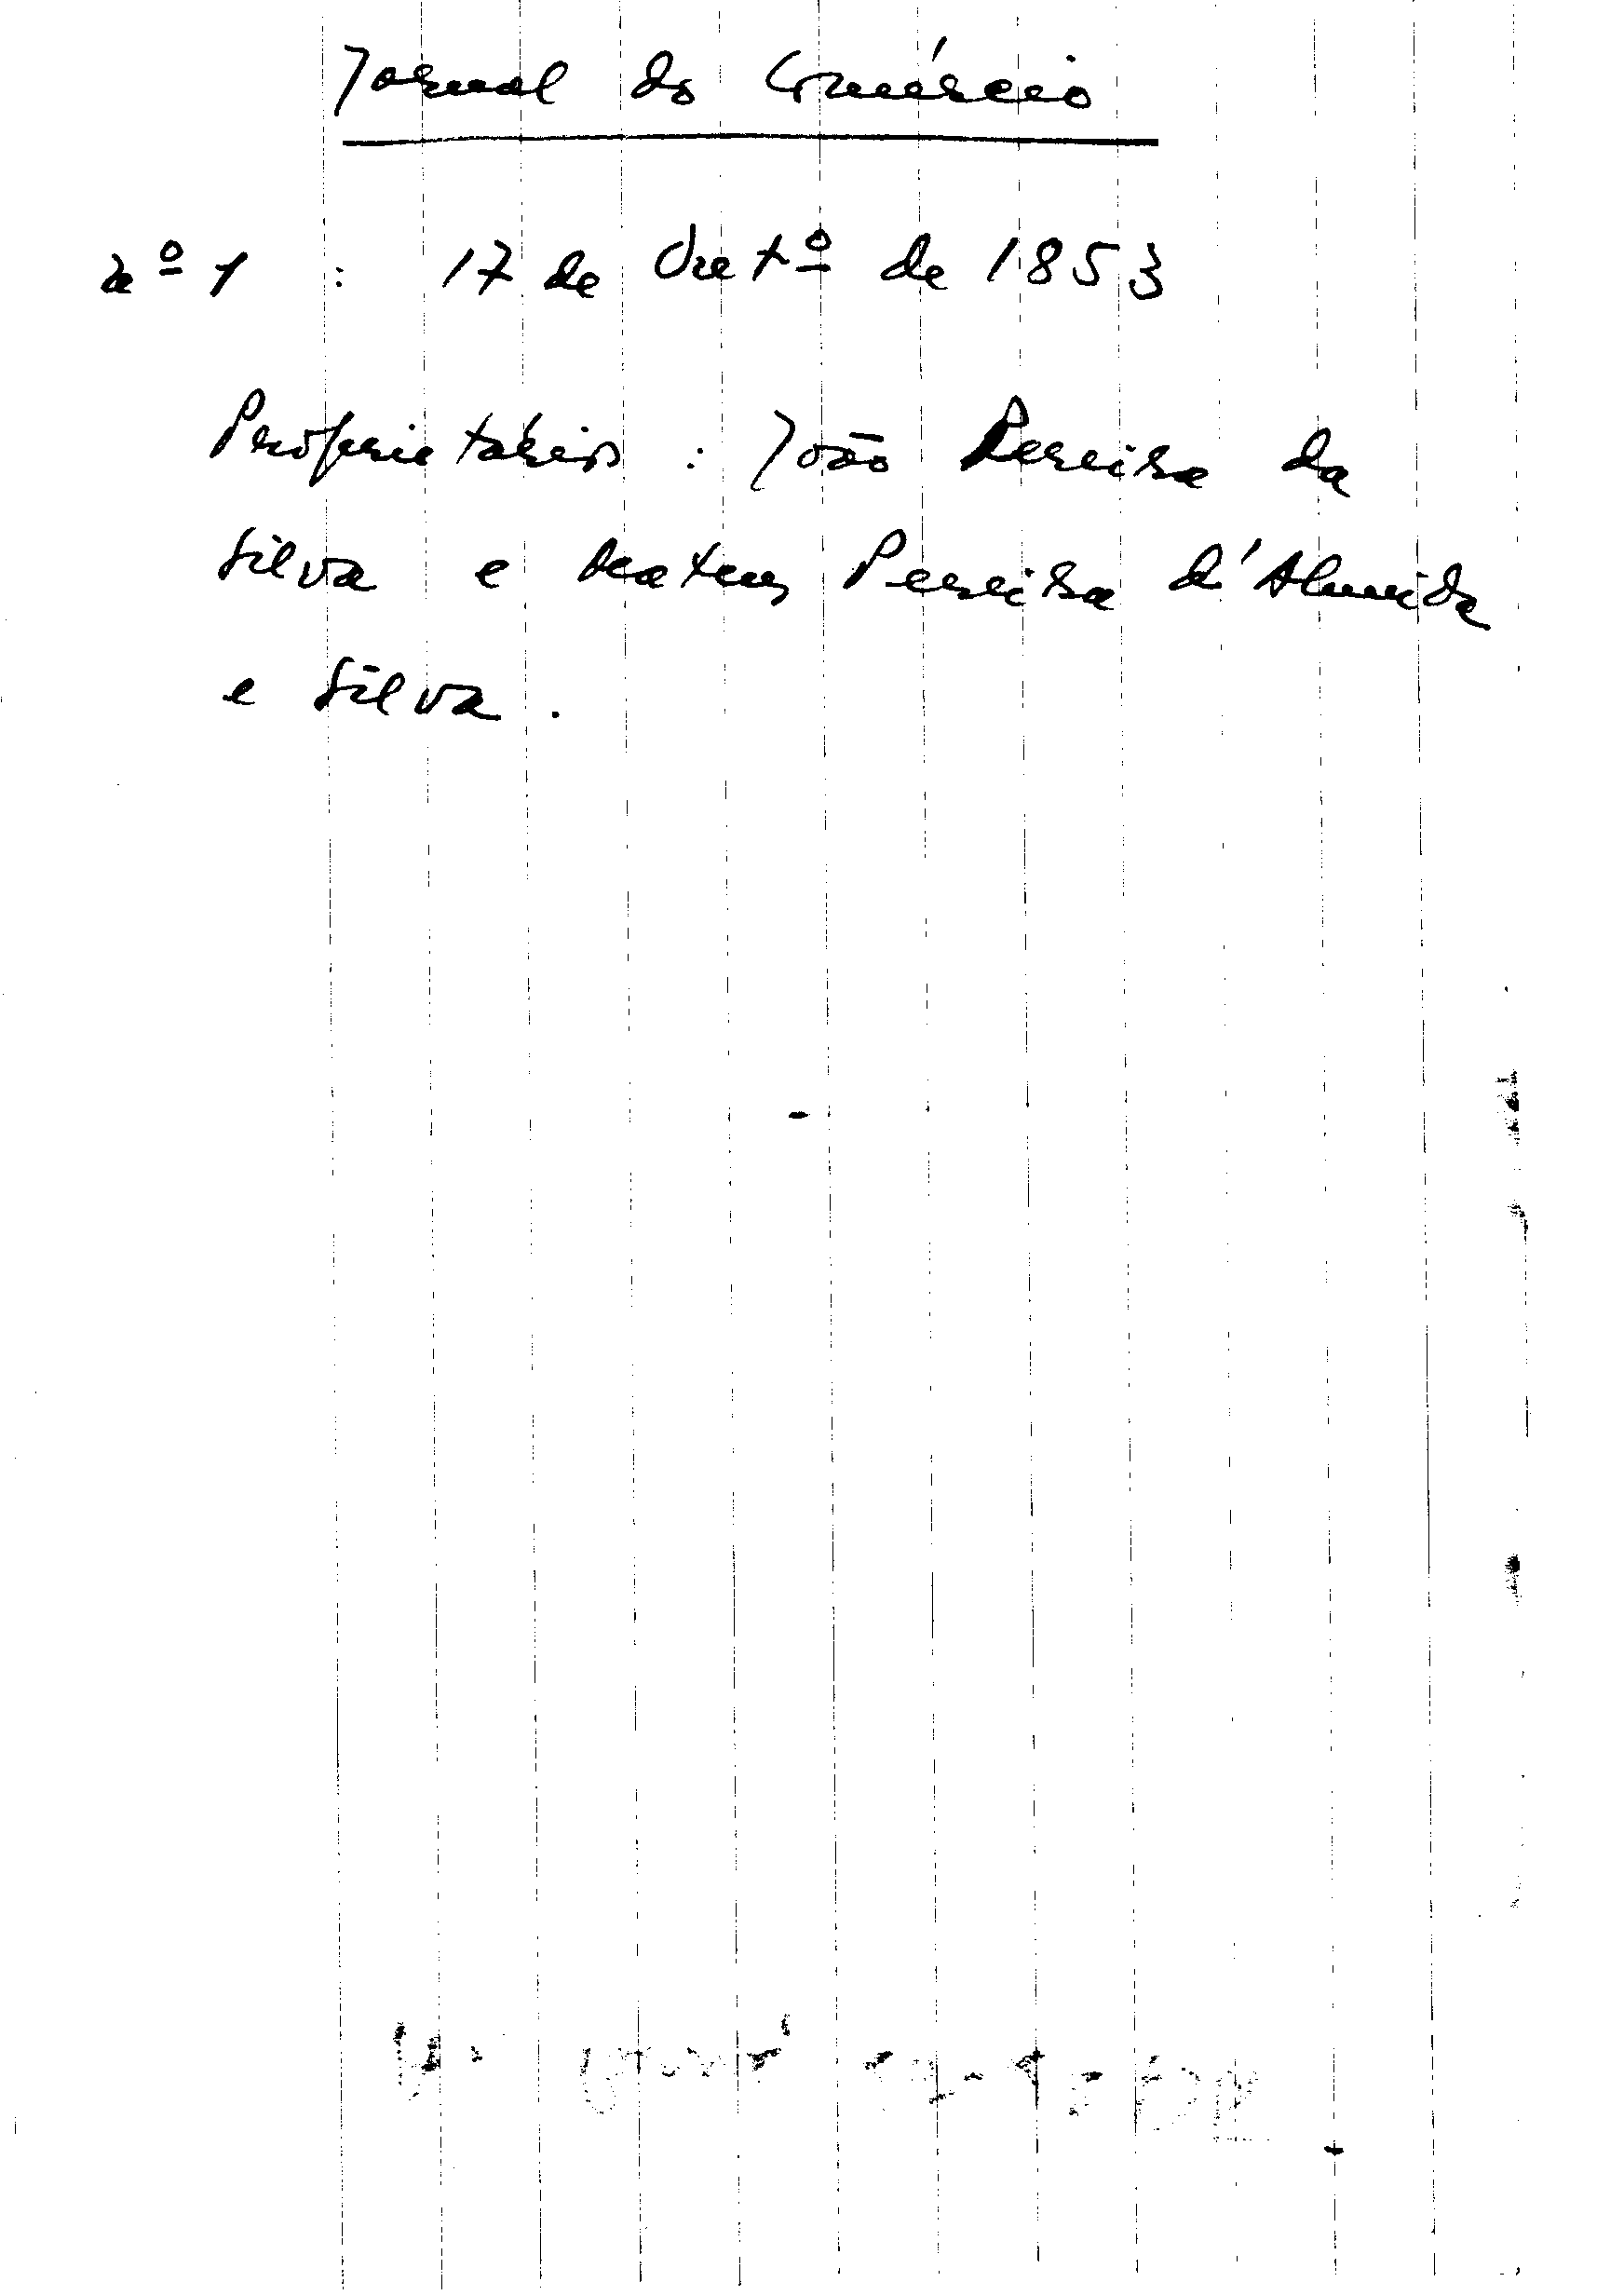 Jornal do Comércio
nº 1 : 17 de Outº de 1853
Proprietários : João Pereira da
Silva e Mateus Pereira d'Almeida
e Silva.